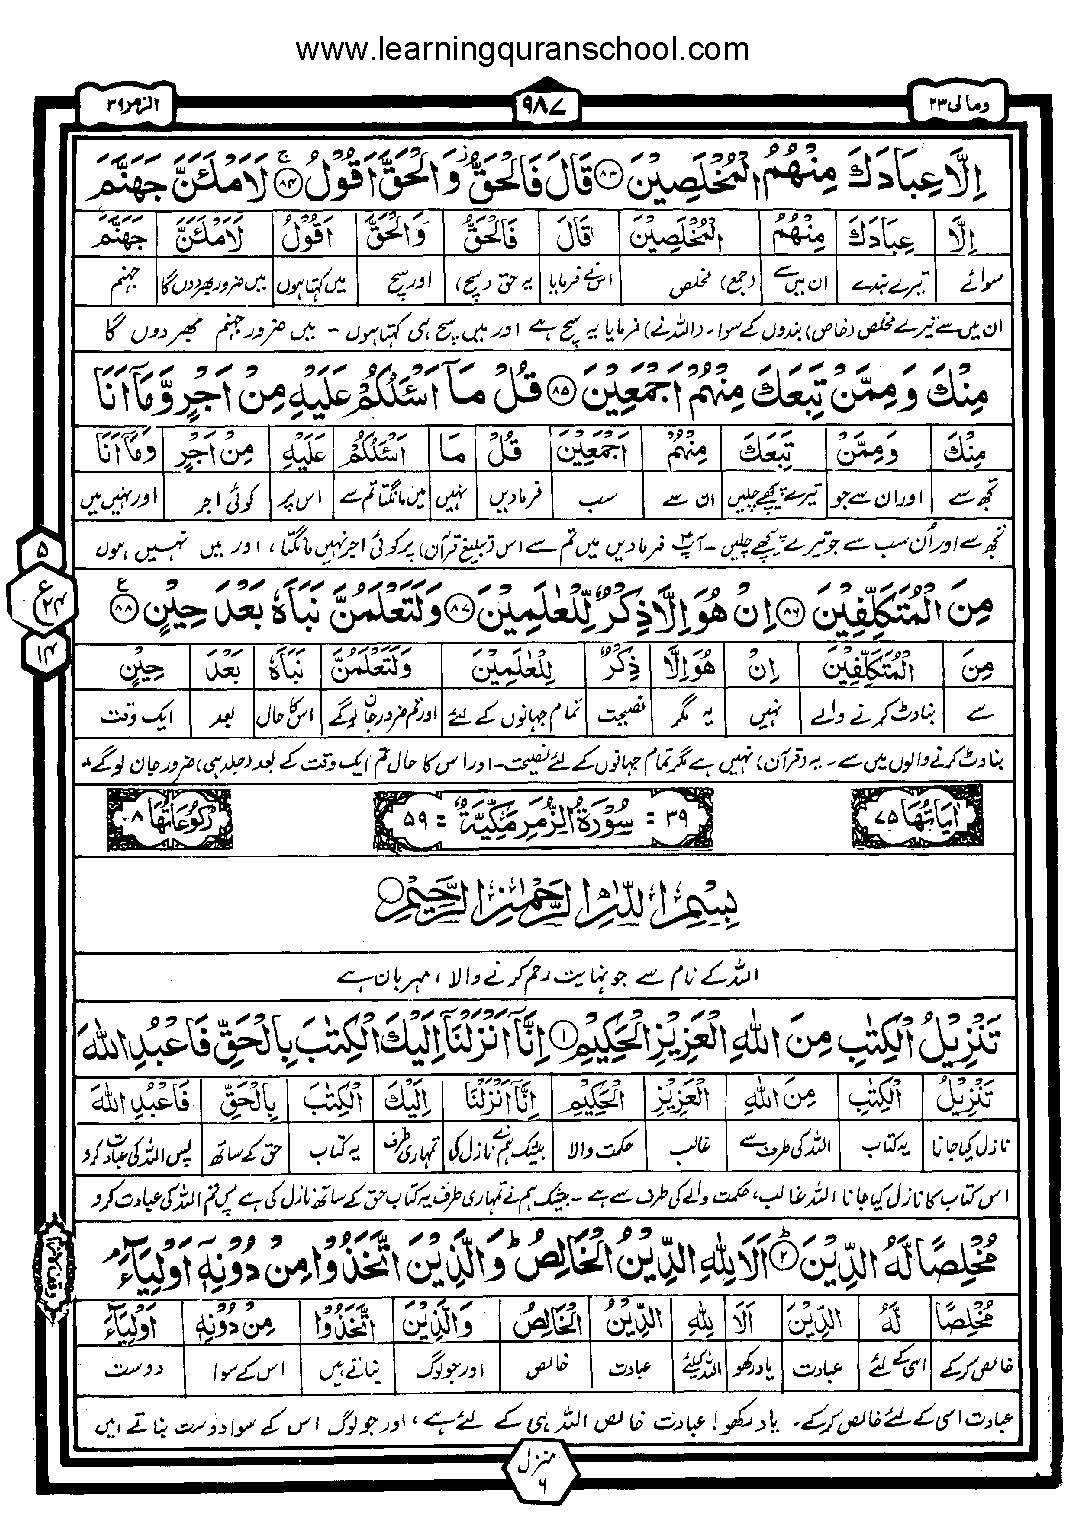 www.learningquranschool.com
ومالی۲۳ ۹۸۷ الزمر۳۹
اِلَّا عِبَادَكَ مِنْهُمُ الْمُخْلَصِيْنَ ۸۳ قَالَ فَالْحَقُّ وَالْحَقَّ اَقُوْلُ ۸۴ لَاَمْلَـَٔنَّ جَهَنَّمَ
اِلَّا عِبَادَكَ مِنْهُمُ الْمُخْلَصِيْنَ قَالَ فَالْحَقُّ وَالْحَقَّ اَقُوْلُ لَاَمْلَـَٔنَّ جَهَنَّمَ
سوائے تیرے بندے ان میں سے (جمع) مخلص اس نے فرمایا یہ حق (سچ) اور سچ میں کہتا ہوں میں ضرور بھر دوں گا جہنم
ان میں سے تیرے مخلص (خاص) بندوں کے سوا۔ (اللہ نے) فرمایا یہ سچ ہے اور میں سچ ہی کہتا ہوں ۔ میں ضرور جہنم بھر دوں گا
مِنْكَ وَمِمَّنْ تَبِعَكَ مِنْهُمْ اَجْمَعِيْنَ ۸۵ قُلْ مَآ اَسْئَلُكُمْ عَلَيْهِ مِنْ اَجْرٍ وَّمَآ اَنَا
مِنْكَ وَمِمَّنْ تَبِعَكَ مِنْهُمْ اَجْمَعِيْنَ قُلْ مَآ اَسْئَلُكُمْ عَلَيْهِ مِنْ اَجْرٍ وَمَآ اَنَا
تجھ سے اور ان سے جو تیرے پیچھے چلیں ان سے سب فرمادیں نہیں میں مانگتا تم سے اس پر کوئی اجر اور نہیں میں
تجھ سے اور اُن سب سے جو تیرے پیچھے چلیں ۔ آپؐ فرمادیں میں تم سے اس (تبلیغ قرآن) پر کوئی اجر نہیں مانگتا، اور میں نہیں ہوں
۵ ع ۲۴ ۱۴
مِنَ الْمُتَكَلِّفِيْنَ ۸۶ اِنْ هُوَ اِلَّا ذِكْرٌ لِّلْعٰلَمِيْنَ ۸۷ وَلَتَعْلَمُنَّ نَبَاَهٗ بَعْدَ حِيْنٍ ۸۸
مِنَ الْمُتَكَلِّفِيْنَ اِنْ هُوَ اِلَّا ذِكْرٌ لِّلْعٰلَمِيْنَ وَلَتَعْلَمُنَّ نَبَاَهٗ بَعْدَ حِيْنٍ
سے بناوٹ کرنے والے نہیں یہ مگر نصیحت تمام جہانوں کے لئے اور تم ضرور جان لوگے اس کا حال بعد ایک وقت
بناوٹ کرنے والوں میں سے ۔ یہ (قرآن) نہیں ہے مگر تمام جہانوں کے لئے نصیحت ۔ اور اس کا حال تم ایک وقت کے بعد (جلد ہی) ضرور جان لوگے
اٰيَاتُهَا ۷۵ ۳۹ = سُوْرَةُ الزُّمَرِ مَكِّيَّةٌ = ۵۹ رُكُوْعَاتُهَا ۸
بِسْمِ اللّٰهِ الرَّحْمٰنِ الرَّحِيْمِ
اللہ کے نام سے جو نہایت رحم کرنے والا، مہربان ہے
تَنْزِيْلُ الْكِتٰبِ مِنَ اللّٰهِ الْعَزِيْزِ الْحَكِيْمِ ۱ اِنَّآ اَنْزَلْنَآ اِلَيْكَ الْكِتٰبَ بِالْحَقِّ فَاعْبُدِ اللّٰهَ
تَنْزِيْلُ الْكِتٰبِ مِنَ اللّٰهِ الْعَزِيْزِ الْحَكِيْمِ اِنَّآ اَنْزَلْنَآ اِلَيْكَ الْكِتٰبَ بِالْحَقِّ فَاعْبُدِ اللّٰهَ
نازل کیا جانا یہ کتاب اللہ کی طرف سے غالب حکمت والا بیشک ہم نے نازل کی تمہاری طرف یہ کتاب حق کے ساتھ پس اللہ کی عبادت کرو
اس کتاب کا نازل کیا جانا اللہ غالب، حکمت والے کی طرف سے ہے ۔ بیشک ہم نے تمہاری طرف یہ کتاب حق کے ساتھ نازل کی ہے پس تم اللہ کی عبادت کرو
مُخْلِصًا لَّهُ الدِّيْنَ ۲ اَلَا لِلّٰهِ الدِّيْنُ الْخَالِصُ ط وَالَّذِيْنَ اتَّخَذُوْا مِنْ دُوْنِهٖٓ اَوْلِيَآءَ
مُخْلِصًا لَّهُ الدِّيْنَ اَلَا لِلّٰهِ الدِّيْنُ الْخَالِصُ وَالَّذِيْنَ اتَّخَذُوْا مِنْ دُوْنِهٖٓ اَوْلِيَآءَ
خالص کر کے اسی کے لئے عبادت یاد رکھو اللہ کیلئے عبادت خالص اور جو لوگ بناتے ہیں اس کے سوا دوست
عبادت اسی کے لئے خالص کر کے ۔ یاد رکھو! عبادت خالص اللہ ہی کے لئے ہے، اور جو لوگ اس کے سوا دوست بناتے ہیں
منزل ۶